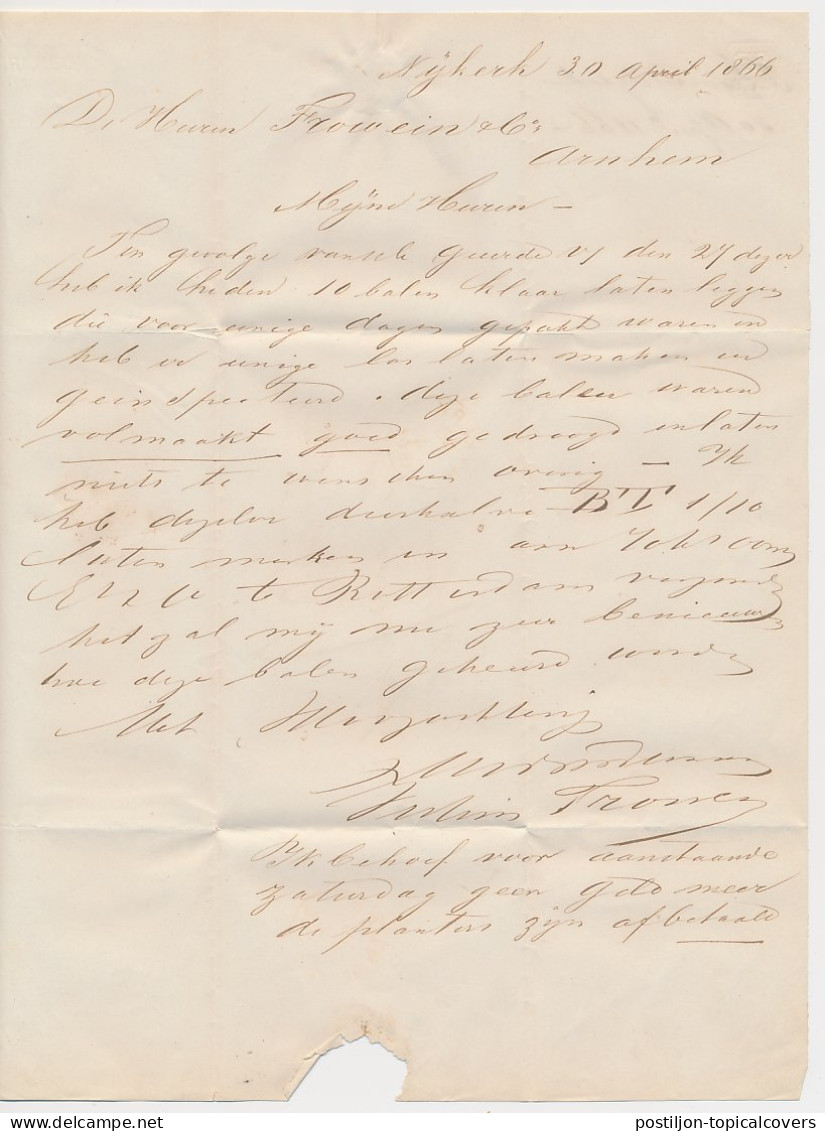 Nijkerk 30 April 1866
De Heeren Frowein & Co
Arnhem
Mijne Heeren –
Ten gevolge geëerde van den 27 dezer
heb ik heden 10 balen klaar laten leggen
die voor eenige dagen gepakt waren en
heb er eenige los laten maken en
geinspecteerd. deze balen waren
volmaakt goed gedroogd en laten
niets te wenschen overig – Ik
heb dezelve derhalve BT 1/10
laten merken en aan
te Rotterdam verzonden
het zal mij zeer benieuwen
hoe deze balen gekeurd worden
Met Hoogachting

Ik behoef voor aanstaande
zaturdag geen geld meer
de planters zijn afbetaald
postiljon-topicalcovers